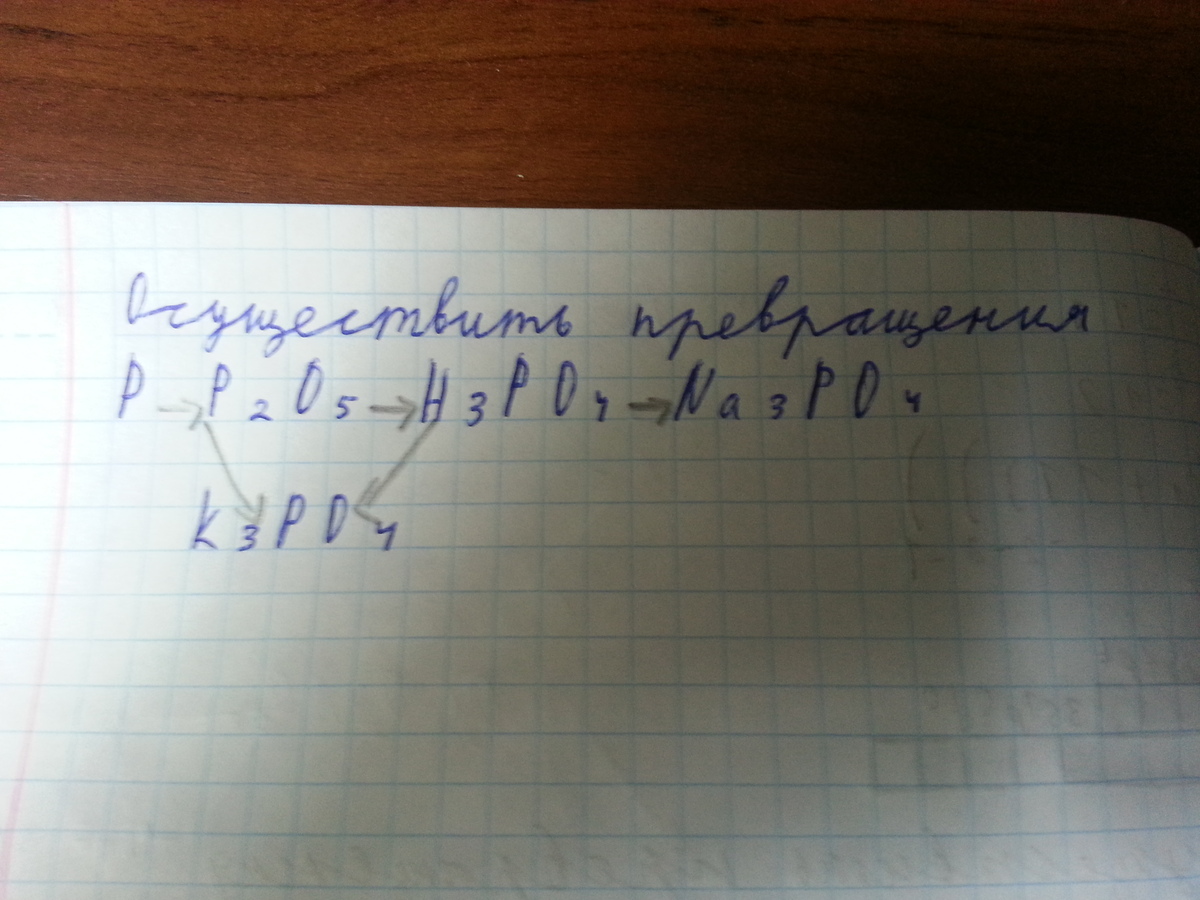 Осуществить превращения
P → P₂O₅ → H₃PO₄ → Na₃PO₄
K₃PO₄